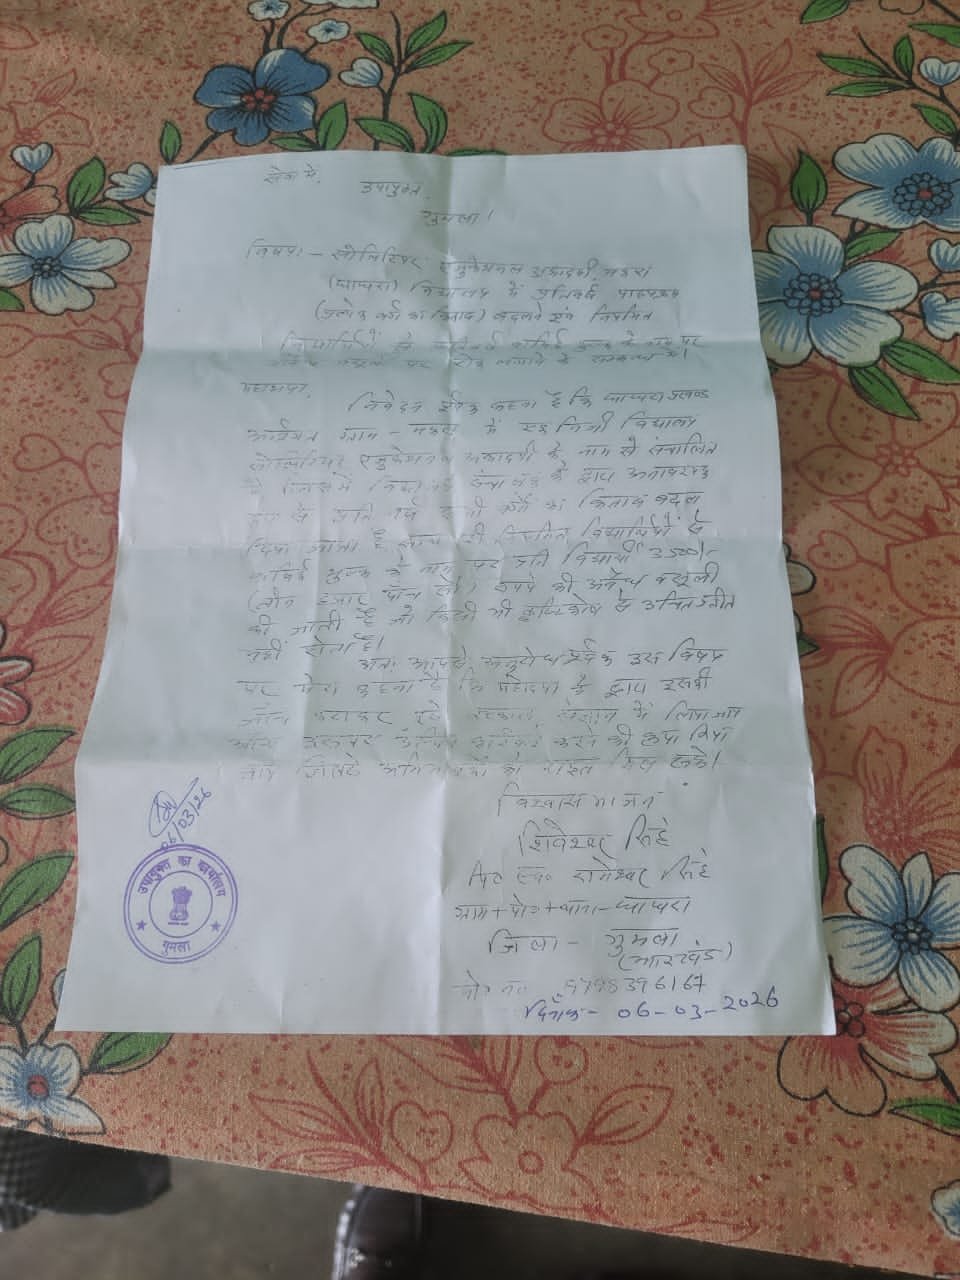 सेवा में,
उपायुक्त,
गुमला।
विषयः- सोलिटियर एजुकेशनल अकादमी,
(घाघरा) विद्यालय में प्रतिवर्ष पाठ्यक्रम
(प्रत्येक वर्ग का किताब) बदलने एवं नियमित
विद्यार्थियों से वार्षिक शुल्क के नाम पर
पर रोक लगाने के सम्बन्ध में।
महाशय,
निवेदन पूर्वक कहना है कि घाघरा प्रखण्ड
अन्तर्गत ग्राम- में एक निजी विद्यालय
सोलिटियर एजुकेशनल अकादमी के नाम से संचालित
है जिसमें के द्वारा अनावश्यक
रूप से प्रति वर्ष सभी वर्ग का किताब बदल
दिया जाता है साथ ही नियमित विद्यार्थियों से
वार्षिक शुल्क के नाम पर प्रति विद्यार्थी 3500/-
(तीन हजार पाँच सौ) रुपये की अवैध वसूली
की जाती है जो किसी भी दृष्टिकोण से उचित प्रतीत
नहीं होता है।
अतः आपसे अनुरोध पूर्वक उक्त विषय
पर मेरा कहना है कि महोदया के द्वारा इसकी
जाँच कराकर एवं तत्काल संज्ञान में लिया जाय
उचित कार्रवाई करने की कृपा किया
जाय जिससे अभिभावकों को राहत मिल सके।
विश्वास भाजन
शिवेश्वर सिंह
पिता स्व० रामेश्वर सिंह
ग्राम+पो०+थाना-घाघरा
जिला - गुमला
(झारखंड)
मो० नं०
दिनांक- 06-03-2026
06/03/26
उपायुक्त का कार्यालय
गुमला